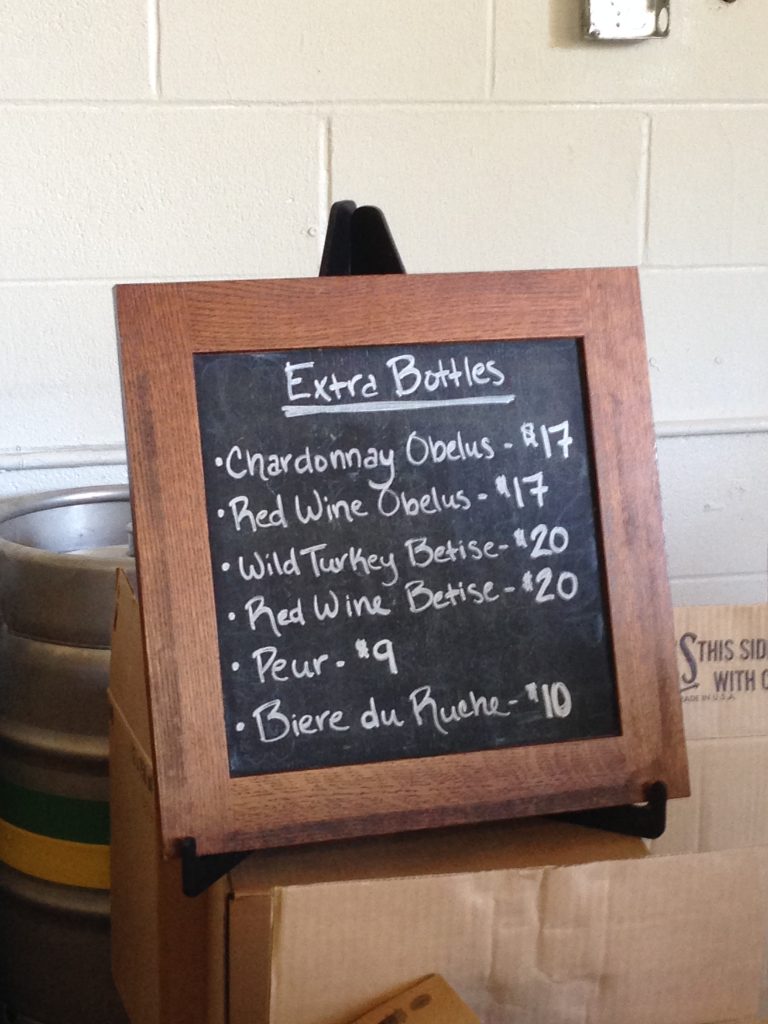 Extra Bottles
•Chardonnay Obelus - $17
•Red Wine Obelus - $17
•Wild Turkey Betise - $20
•Red Wine Betise - $20
•Peur - $9
•Biere du Ruche - $10
THIS SID
WITH
MADE IN U.S.A.